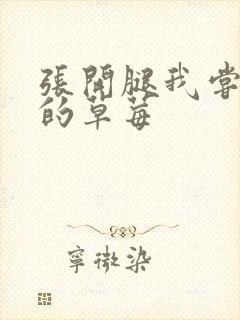 張開腿我嘗
的草莓
寧微染